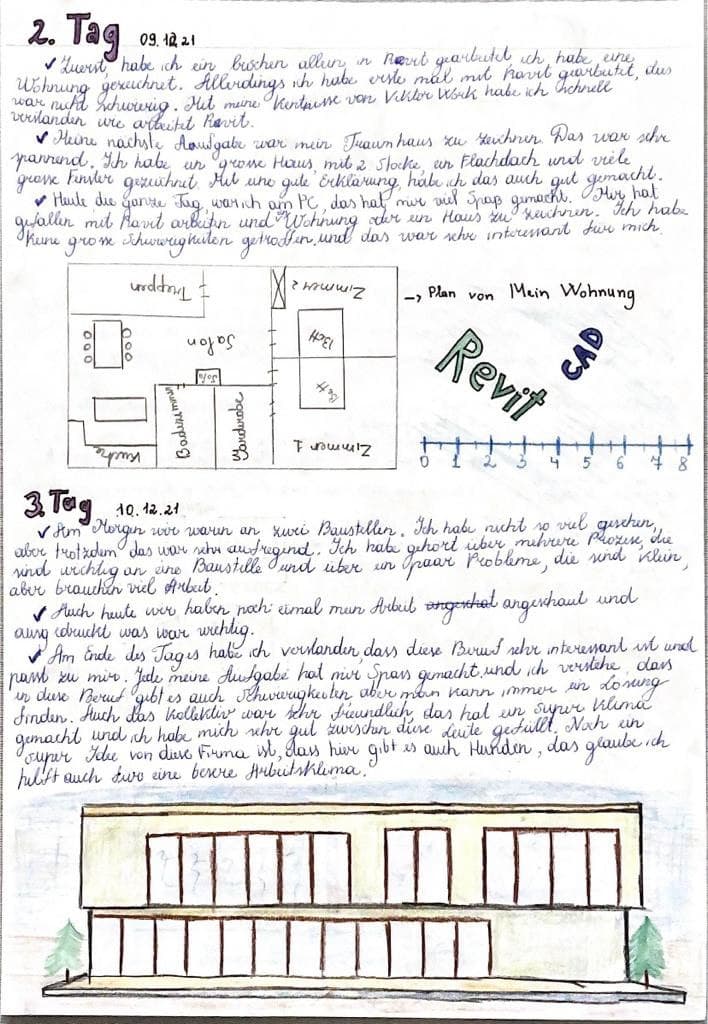 2. Tag 09.12.21
✓ Zuerst, habe ich ein bischen allein in Revit gearbeitet, ich habe eine
Wohnung gezeichnet. Allerdings ich habe erste mal mit Revit gearbeitet, das
war nicht schwierig. Mit meine Kentnisse von Viktor Work habe ich schnell
verstanden wie arbeitet Revit.
✓ Meine nächste Aufgabe war mein Traumhaus zu zeichnen. Das war sehr
spannend. Ich habe ein grosse Haus, mit 2 Stocke, ein Flachdach und viele
grosse Fenster gezeichnet. Mit eine gute Erklärung, habe ich das auch gut gemacht.
✓ Heute die ganze Tag, war ich am PC, das hat mir viel Spaß gemacht. Mir hat
gefallen mit Revit arbeiten und Wohnung oder ein Haus zu zeichnen. Ich habe
keine grosse Schwierigkeiten getroffen, und das war sehr interessant für mich.
Treppen
Zimmer 2
→ Plan von Mein Wohnung
Salon
Bett
Revit
CAD
Sofa
Bett
Badezimmer
Garderobe
Küche
Zimmer 1
0 1 2 3 4 5 6 7 8
3. Tag 10.12.21
✓ Am Morgen wir waren an zwei Baustellen. Ich habe nicht so viel gesehen,
aber trotzdem das war sehr aufregend. Ich habe gehört über mehrere Prozese, die
sind wichtig an eine Baustelle und über ein paar Probleme, die sind klein,
aber brauchen viel Arbeit.
✓ Auch heute wir haben noch einmal mein Arbeit angeschaut und
ausgedruckt was war wichtig.
✓ Am Ende des Tages habe ich verstanden, dass diese Beruf sehr interessant ist und
passt zu mir. Jede meine Aufgabe hat mir Spass gemacht und ich verstehe, dass
in diese Beruf gibt es auch Schwierigkeiten aber man kann immer ein Lösung
finden. Auch das Kollektiv war sehr freundlich, das hat ein super Klima
gemacht und ich habe mich sehr gut zwischen diese Leute gefüllt. Noch ein
super Idee von diese Firma ist, dass hier gibt es auch Hunden, das glaube ich
hilft auch für eine besere Arbeitsklima.